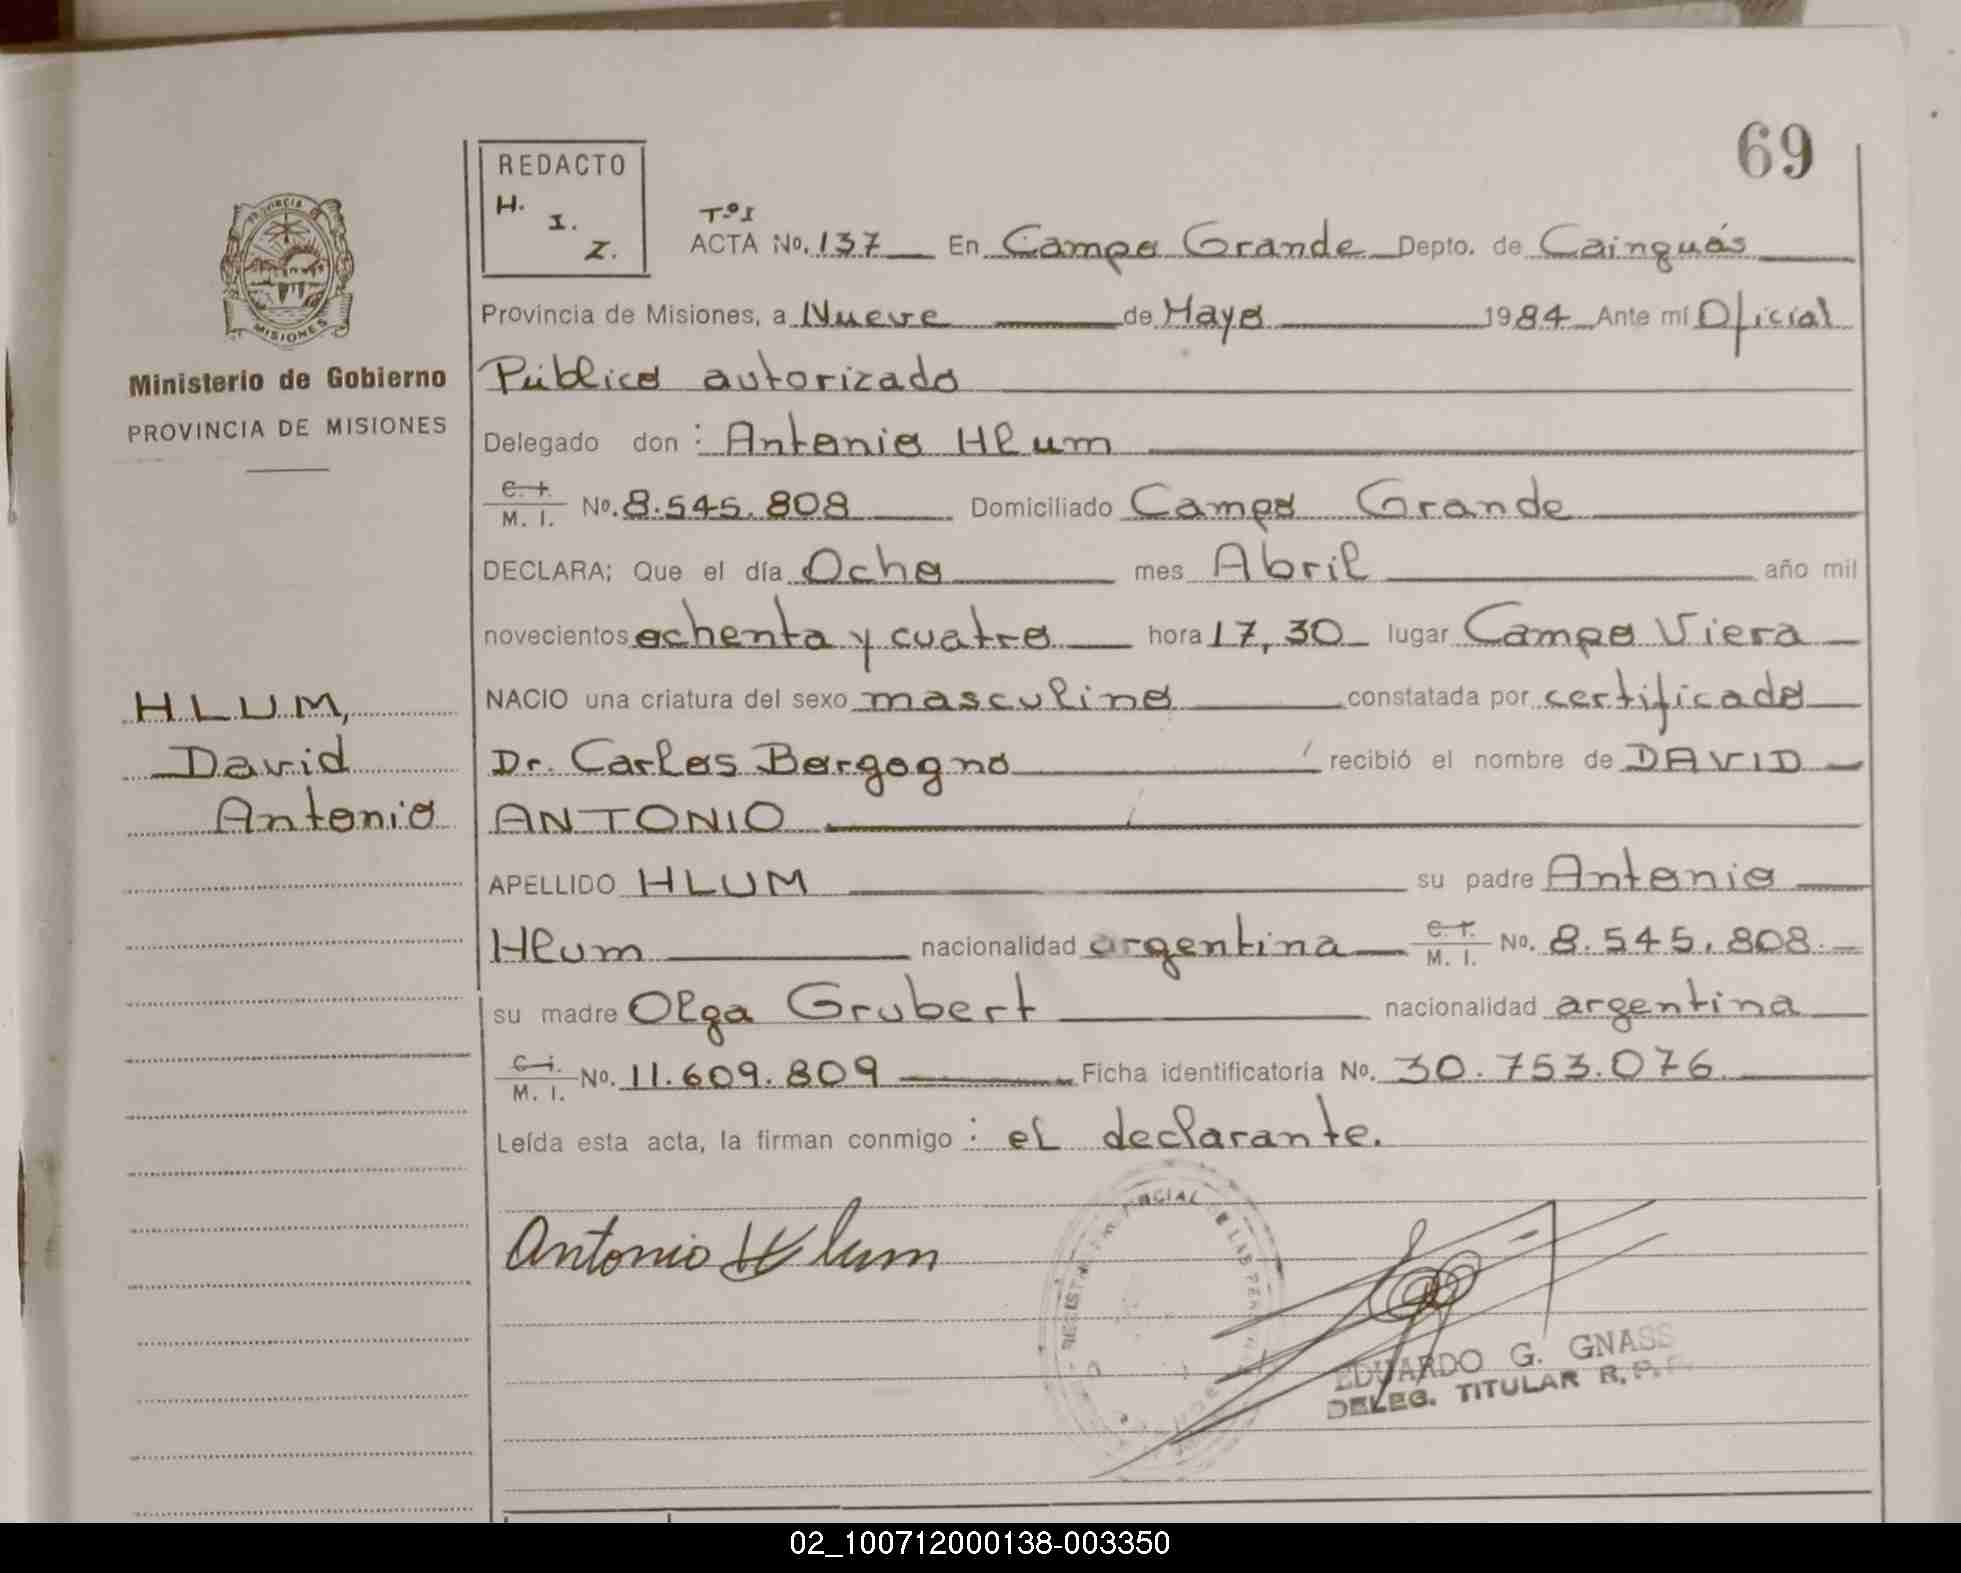 69
REDACTO
H.
I.
Z.
Tº I
ACTA No. 137 En Campo Grande Depto. de Cainguás
Provincia de Misiones, a Nueve de Mayo 1984 Ante mí Oficial
Público autorizado
Delegado don: Antonio Hlum
C. I. / M. I. No. 8.545.808 Domiciliado Campo Grande
DECLARA; Que el día Ocho mes Abril año mil
novecientos ochenta y cuatro hora 17,30 lugar Campo Viera
NACIO una criatura del sexo masculino constatada por certificado
Dr. Carlos Borgogno recibió el nombre de DAVID
ANTONIO
APELLIDO HLUM su padre Antonio
Hlum nacionalidad argentina C. I. / M. I. No. 8.545.808
su madre Olga Grubert nacionalidad argentina
C. I. / M. I. No. 11.609.809 Ficha identificatoria No. 30.753.076
Leída esta acta, la firman conmigo: el declarante.
Antonio Hlum
EDUARDO G. GNASS
DELEG. TITULAR R. P.
PROVINCIA
MISIONES
Ministerio de Gobierno
PROVINCIA DE MISIONES
HLUM,
David
Antonio
02_100712000138-003350